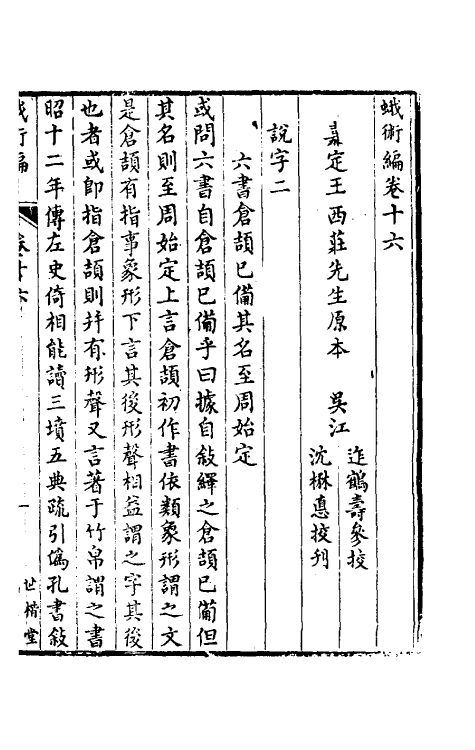 蛾術編卷十六
嘉定王西莊先生原本 吳江
迮鶴壽參挍
沈楙悳挍刋
說字二
六書倉頡已備其名至周始定
或問六書自倉頡已備乎曰據自敍繹之倉頡已備但
其名則至周始定上言倉頡初作書依類象形謂之文
是倉頡有指事象形下言其後形聲相益謂之字其後
也者或即指倉頡則幷有形聲又言著于竹帛謂之書
昭十二年傳左史倚相能讀三墳五典疏引僞孔書敍
蛾術編 卷十六 一 世楷堂